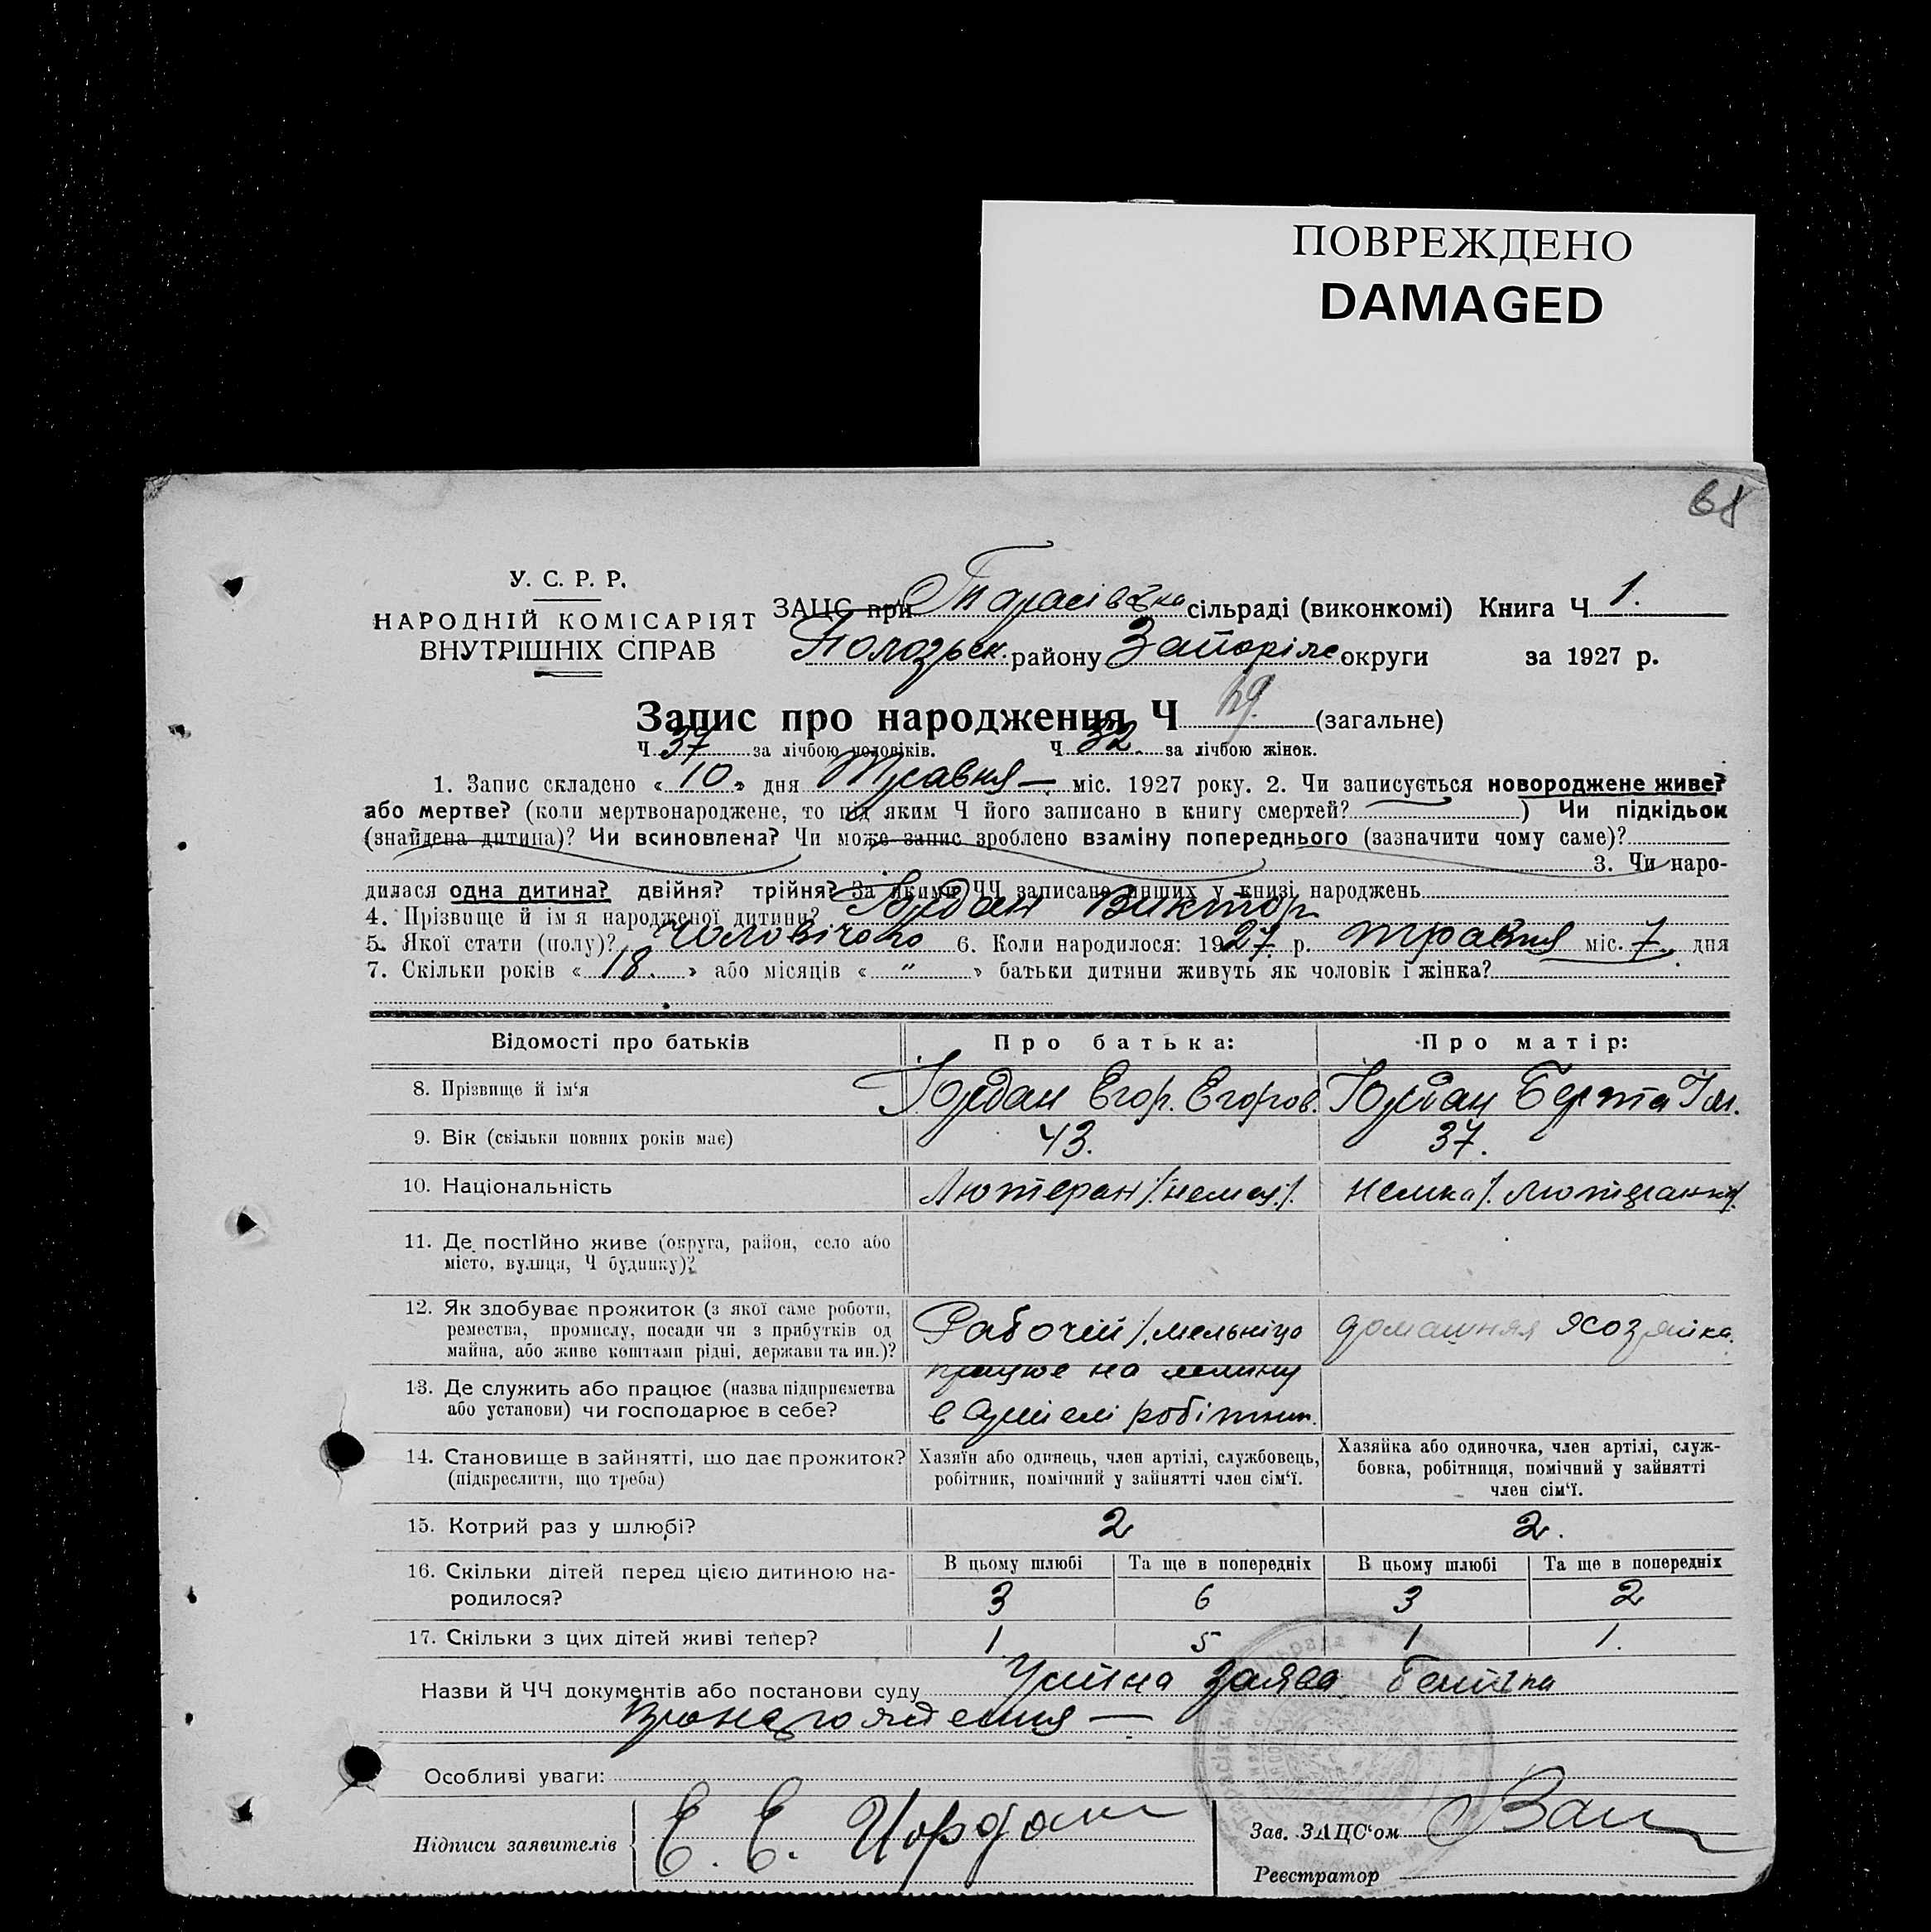 ПОВРЕЖДЕНО
DAMAGED
68
У. С. Р. Р.
НАРОДНІЙ КОМІСАРІЯТ
ВНУТРІШНІХ СПРАВ
ЗАЦС при Тарасівська сільраді (виконкомі) Книга Ч 1.
Пологівськ. району Запоріж округи за 1927 р.
Запис про народження Ч 69. (загальне)
Ч 37 за лічбою чоловіків. Ч 32. за лічбою жінок.
1. Запис складено «10» дня Травня — міс. 1927 року. 2. Чи записується новороджене живе?
або мертве? (коли мертвонароджене, то під яким Ч його записано в книгу смертей? ) Чи підкідьок
(знайдена дитина)? Чи всиновлена? Чи може запис зроблено взаміну попереднього (зазначити чому саме)?
3. Чи наро-
дилася одна дитина? двійня? трійня? За якими ЧЧ записано инших у книзі народжень
4. Прізвище й ім'я народженої дитини? Іордан Виктор
5. Якої стати (полу)? Чоловічого 6. Коли народилося: 1927 р. травня міс. 7. дня
7. Скільки років «18.» або місяців «"» батьки дитини живуть як чоловік і жінка?
Відомості про батьків Про батька: Про матір:
8. Прізвище й ім'я Іордан Егор. Егоров. Іордан Берта Ів.
9. Вік (скільки повних років має) 43. 37.
10. Національність Лютеран /.немец/. Немка/. Лютеранка/.
11. Де постійно живе (округа, район, село або
місто, вулиця, Ч будинку)?
12. Як здобуває прожиток (з якої саме роботи,
ремества, промислу, посади чи з прибутків од
майна, або живе коштами рідні, держави та ин.)?
Рабочій /.мельніцо домашняя хозяйка.
13. Де служить або працює (назва підприємства
або установи) чи господарює в себе?
працює на млину
в робітник.
14. Становище в зайнятті, що дає прожиток?
(підкреслити, що треба)
Хазяїн або одинець, член артілі, службовець,
робітник, помічний у зайнятті член сім'ї.
Хазяйка або одиночка, член артілі, служ-
бовка, робітниця, помічний у зайнятті
член сім'ї.
15. Котрий раз у шлюбі? 2 2.
16. Скільки дітей перед цією дитиною на-
родилося?
В цьому шлюбі Та ще в попередніх В цьому шлюбі Та ще в попередніх
3 6 3 2
17. Скільки з цих дітей живі тепер? 1 5 1 1.
Назви й ЧЧ документів або постанови суду Усїна заява
Особливі уваги:
Підписи заявителів Е. Е. Иордан
Зав. ЗАЦС'ом
Реєстратор